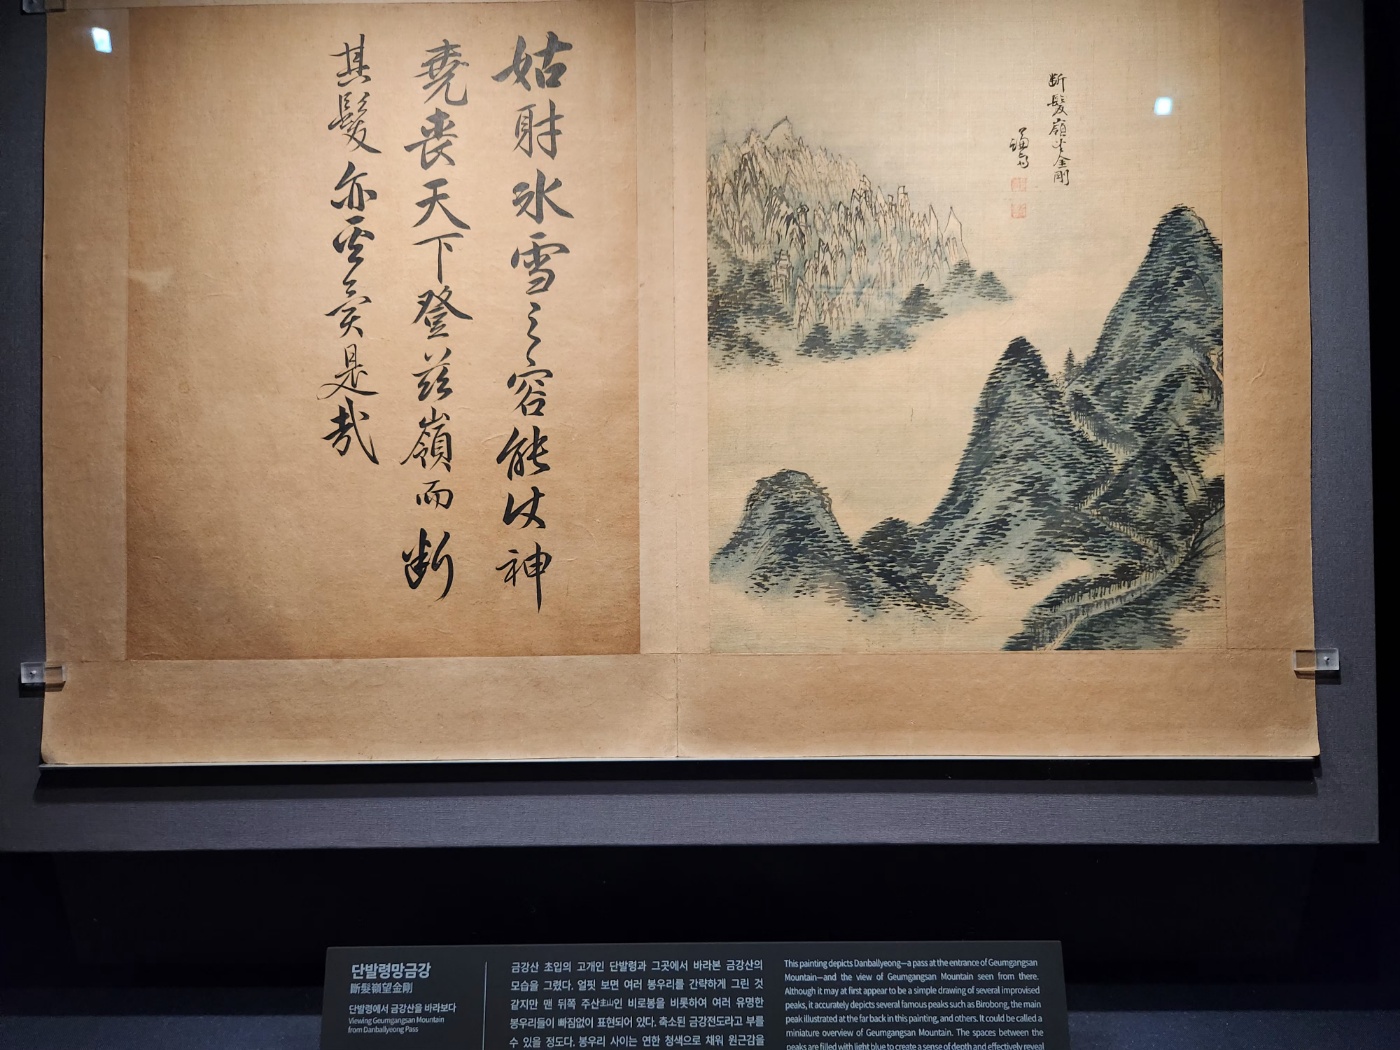 断髮嶺望金剛
謙齋
姑射氷雪之容能使神
堯喪天下登玆嶺而断
其髮亦是哉
단발령망금강
斷髮嶺望金剛
단발령에서 금강산을 바라보다
Viewing Geumgangsan Mountain
from Danballyeong Pass
금강산 초입의 고개인 단발령과 그곳에서 바라본 금강산의
모습을 그렸다. 얼핏 보면 여러 봉우리를 간략하게 그린 것
같지만 맨 뒤쪽 주산主山인 비로봉을 비롯하여 여러 유명한
봉우리들이 빠짐없이 표현되어 있다. 축소된 금강전도라고 부를
수 있을 정도다. 봉우리 사이는 연한 청색으로 채워 원근감을
This painting depicts Danballyeong—a pass at the entrance of Geumgangsan
Mountain—and the view of Geumgangsan Mountain seen from there.
Although it may at first appear to be a simple drawing of several improvised
peaks, it accurately depicts several famous peaks such as Birobong, the main
peak illustrated at the far back in this painting, and others. It could be called a
miniature overview of Geumgangsan Mountain. The spaces between the
peaks are filled with light blue to create a sense of depth and effectively reveal